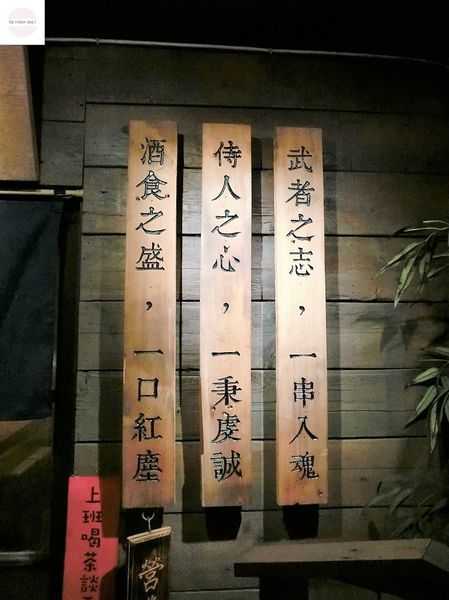 THE FOODIE DAILY
武者之志，一串入魂
侍人之心，一秉虔誠
酒食之盛，一口紅塵
上班喝茶談
營